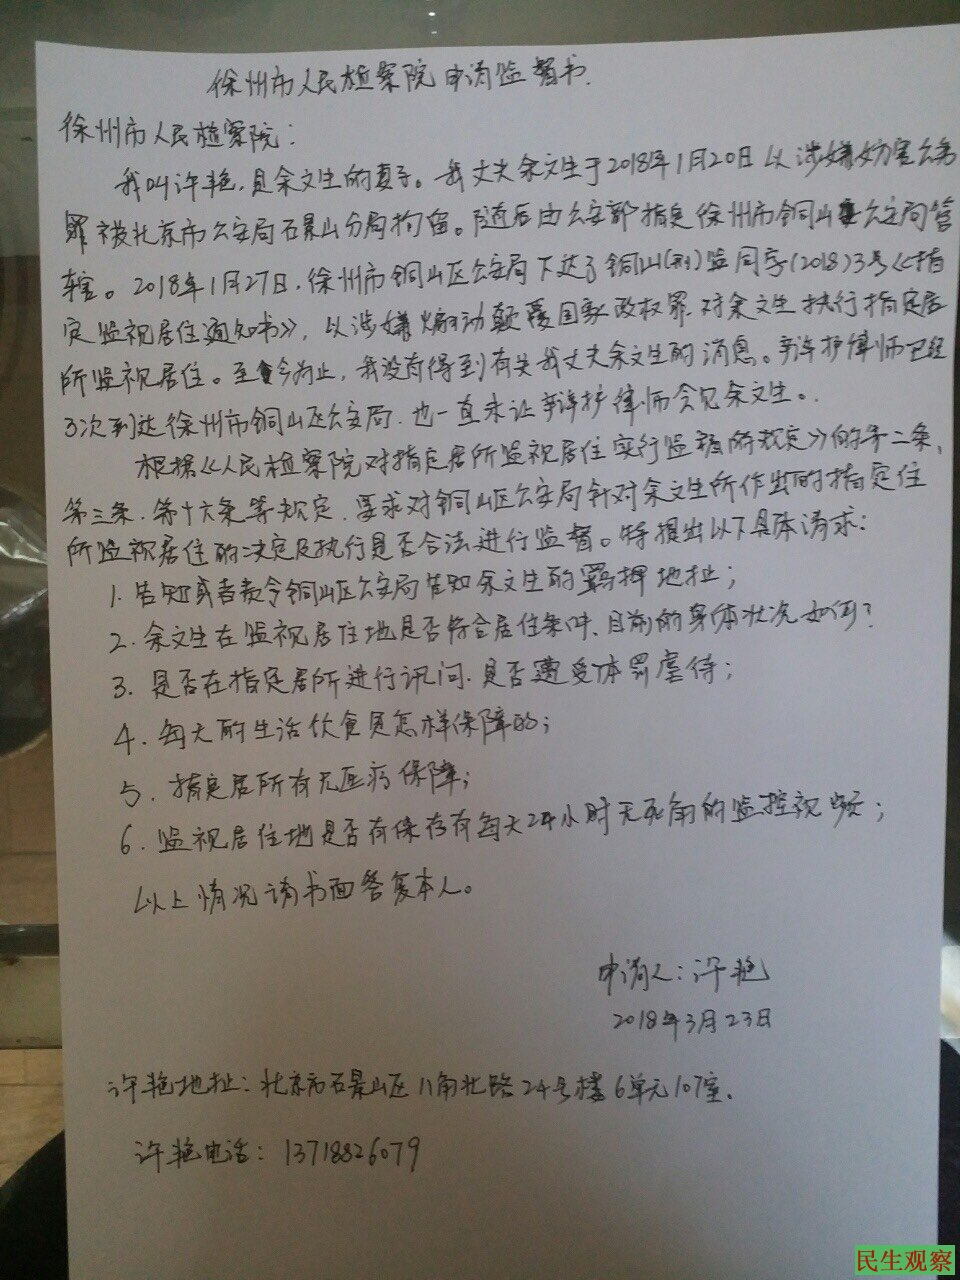 徐州市人民检察院申请监督书.
徐州市人民检察院:
我叫许艳,是余文生的妻子。我丈夫余文生于2018年1月20日以涉嫌妨害公务
罪被北京市公安局石景山分局拘留。随后由公安部指定徐州市铜山区公安局管
辖。2018年1月27日,徐州市铜山区公安局下达了铜山(刑)监同字(2018)3号《指
定监视居住通知书》,以涉嫌煽动颠覆国家政权罪对余文生执行指定居
所监视居住。至今为止,我没有得到有关我丈夫余文生的消息。辩护律师已经
3次到达徐州市铜山区公安局,也一直未让辩护律师会见余文生。
根据《人民检察院对指定居所监视居住实行监督的规定》的第二条,
第三条,第十六条等规定,要求对铜山区公安局针对余文生所作出的指定住
所监视居住的决定及执行是否合法进行监督。特提出以下具体请求:
1.告知或者责令铜山区公安局告知余文生的羁押地址;
2.余文生在监视居住地是否符合居住条件、目前的身体状况如何?
3.是否在指定居所进行讯问,是否遭受体罚虐待;
4.每天的生活饮食是怎样保障的;
5.指定居所有无医疗保障;
6.监视居住地是否有保存有每天24小时无死角的监控视频;
以上情况请书面答复本人。
申请人:许艳
2018年3月23日
许艳地址:北京市石景山区八角北路24号楼6单元107室.
许艳电话:13718826079
民生观察